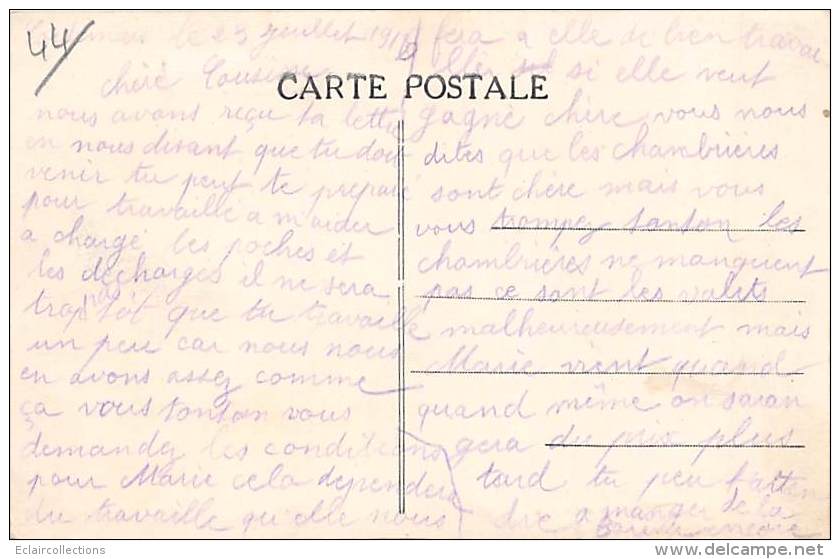 44
le 25 Juillet 191
chère Cousine
CARTE POSTALE
nous avons reçu ta lettre
en nous disant que tu doit
venir tu peut te préparé
pour travaillé a m'aider
a chargé les poches et
les décharges il ne sera
trop tôt que tu travaille
un peu car nous nous
en avons assez comme
ça vous tonton vous
demandez les conditions
pour Marie cela dependera
du travaille qu'elle nous
fera a elle de bien travai
ller si elle veut
gagné chère vous nous
dites que les chambrières
sont chère mais vous
vous trompez tonton les
chambrières ne manquent
pas ce sont les valets
malheureusement mais
Marie vient quand
quand même on saran
gera du prix plus
tard tu peu t'atten
dre a manger de la
encore
Eclaircollections
www.delcampe.net